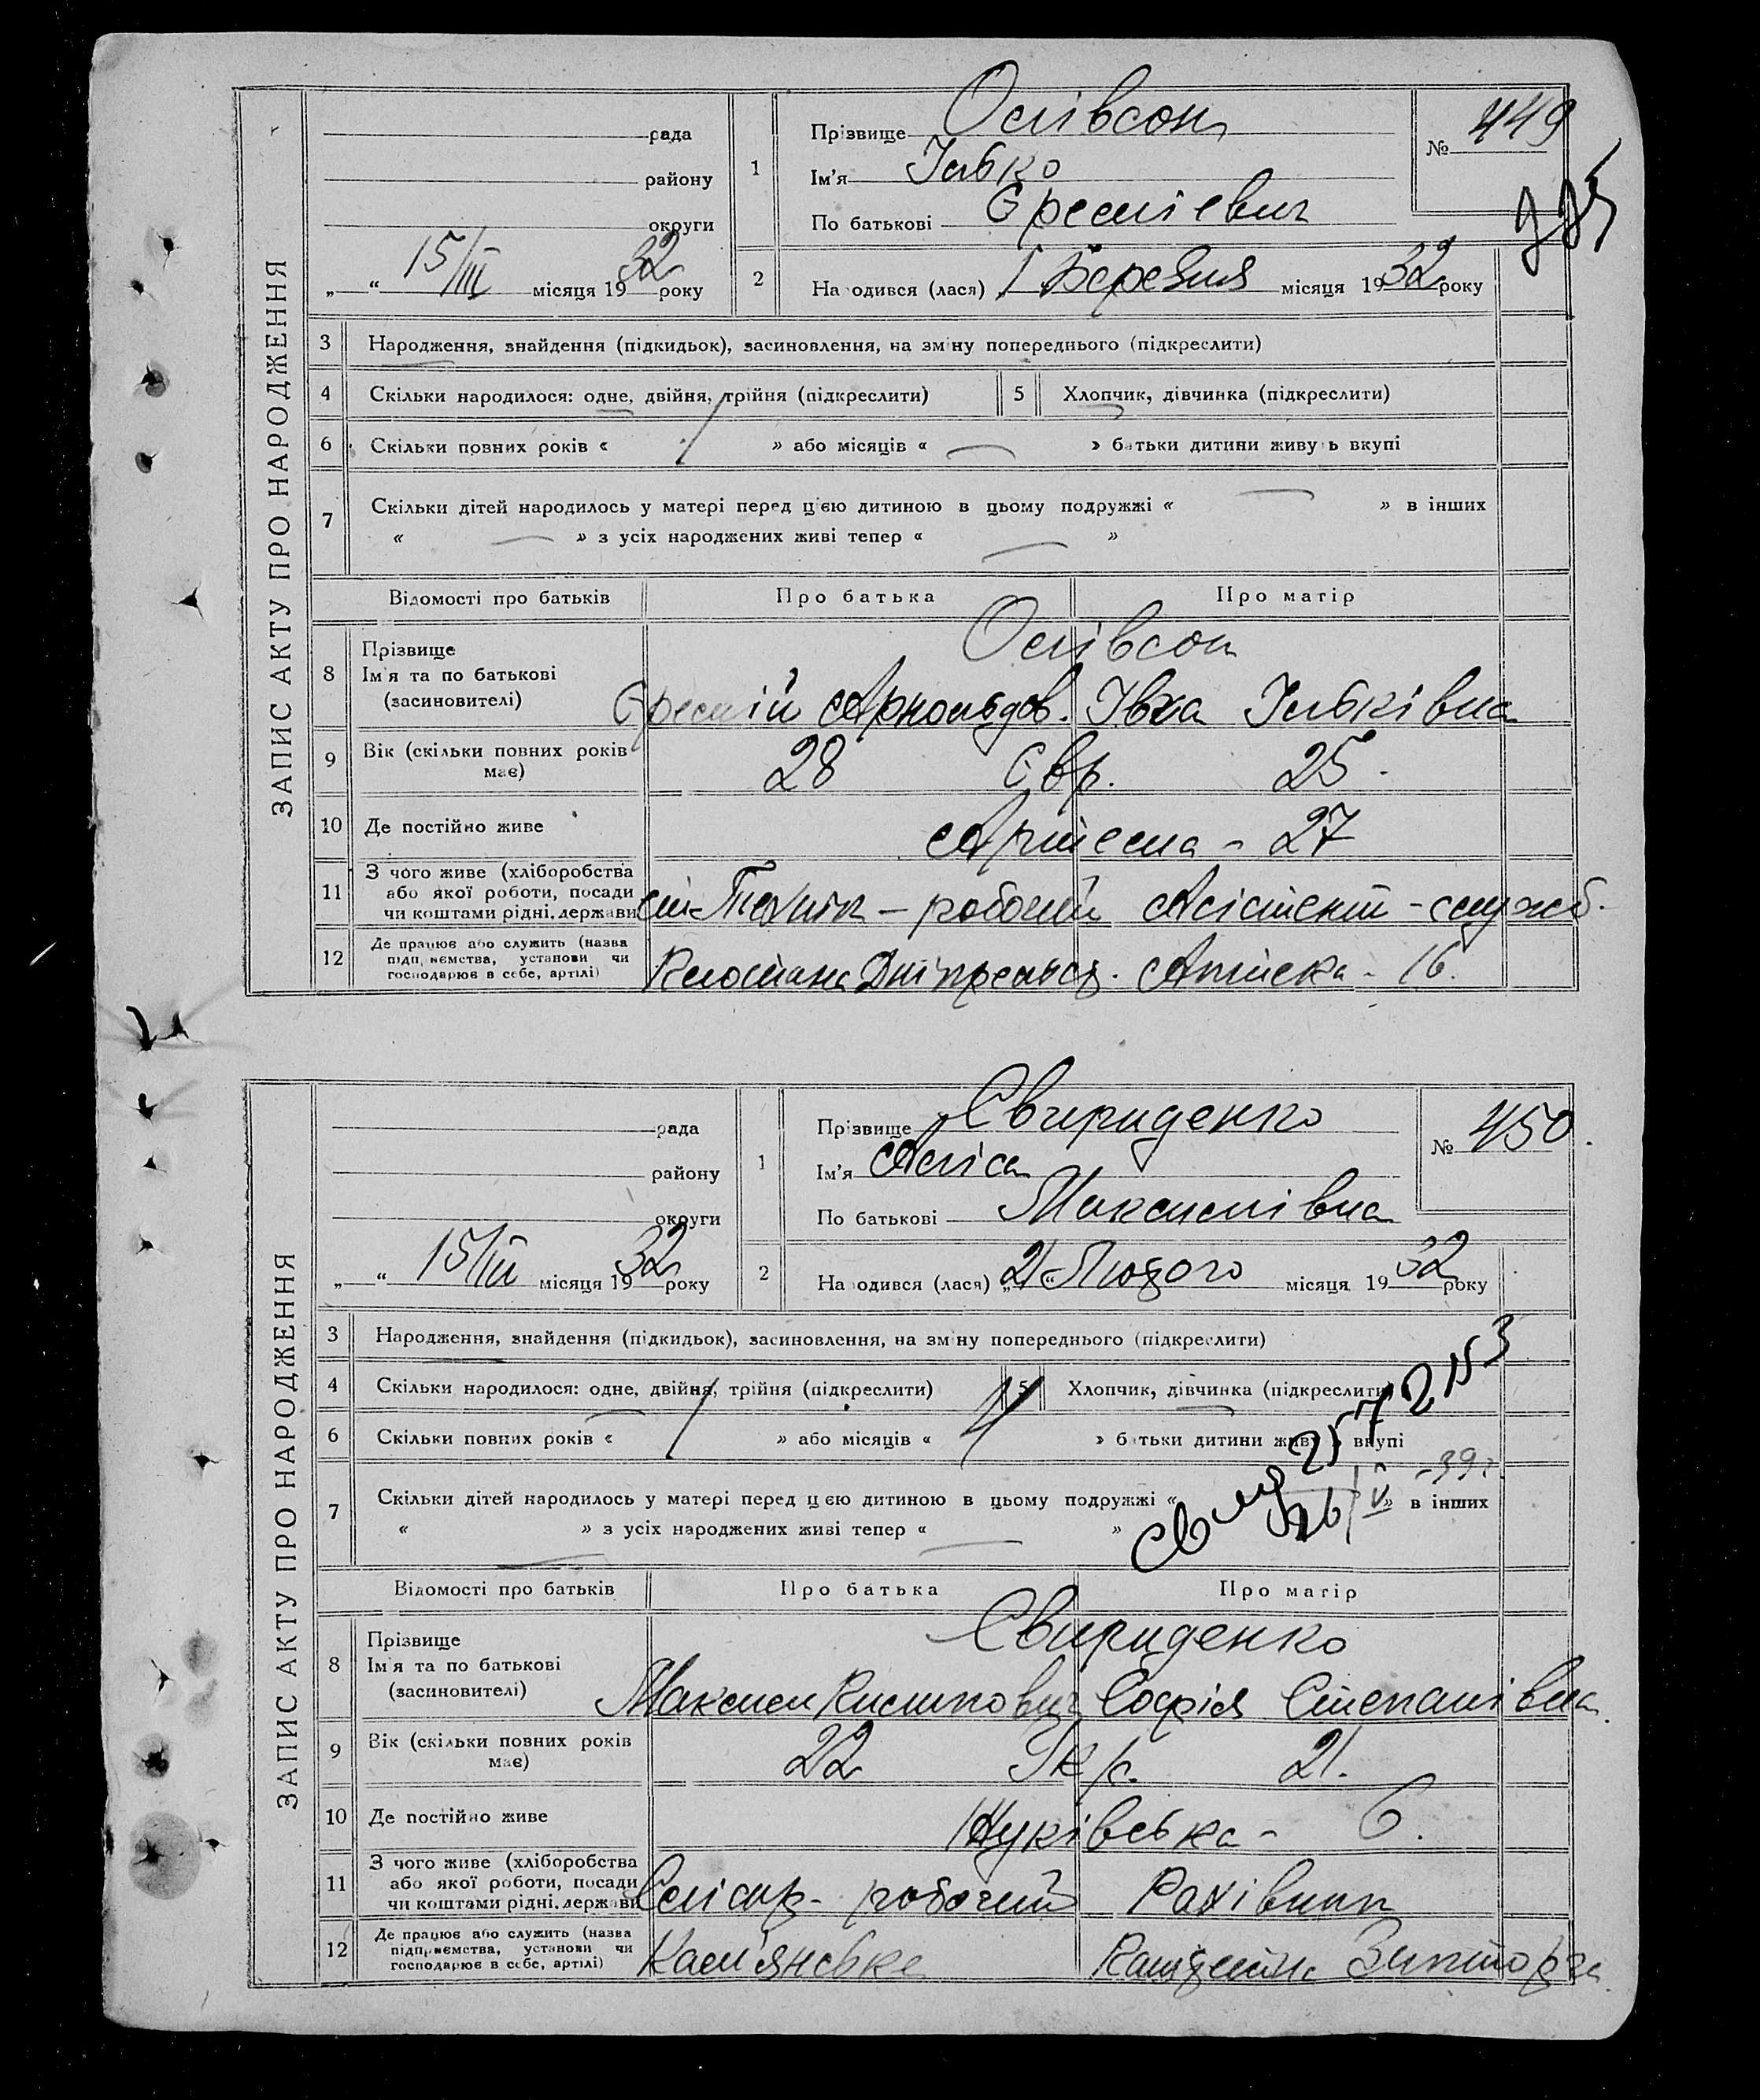 ЗАПИС АКТУ ПРО НАРОДЖЕННЯ
рада
району
округи
15/III місяця 1932 року
1
Прізвище
Ім'я Ілько
По батькові Єремієвич
№ 449
2 Народився (лася) 1 Березня місяця 1932 року
3 Народження, знайдення (підкидьок), засиновлення, на зміну попереднього (підкреслити)
4 Скільки народилося: одне, двійня, трійня (підкреслити) 5 Хлопчик, дівчинка (підкреслити)
6 Скільки повних років « 1 » або місяців « — » батьки дитини живуть вкупі
7 Скільки дітей народилось у матері перед цією дитиною в цьому подружжі « — » в інших
« — » з усіх народжених живі тепер « — »
Відомості про батьків Про батька Про матір
8 Прізвище
Ім'я та по батькові
(засиновителі)
Єремій Арнольдов. Івха Ільківна
9 Вік (скільки повних років має) 28 Євр. 25.
10 Де постійно живе Артема - 27
11 З чого живе (хліборобства або якої роботи, посади чи коштами рідні, держави Технік - робочий Асістент - служб.
12 Де працює або служить (назва підприємства, установи чи господарює в себе, артілі) Аптека - 16.
ЗАПИС АКТУ ПРО НАРОДЖЕННЯ
рада
району
округи
15/III місяця 1932 року
1
Прізвище Свириденко
Ім'я Аліса
По батькові Максимівна
№ 450.
2 Народився (лася) „21“ Лютого місяця 1932 року
3 Народження, знайдення (підкидьок), засиновлення, на зміну попереднього (підкреслити)
4 Скільки народилося: одне, двійня, трійня (підкреслити) 5 Хлопчик, дівчинка (підкреслити)
6 Скільки повних років « 1 » або місяців « 4 » батьки дитини живуть вкупі
7 Скільки дітей народилось у матері перед цією дитиною в цьому подружжі « » в інших
« — » з усіх народжених живі тепер « — »
26/V - 39 г.
Відомості про батьків Про батька Про матір
8 Прізвище
Ім'я та по батькові
(засиновителі)
Свириденко
Максим Пилипович Софія Степанівна
9 Вік (скільки повних років має) 22 Укр. 21.
10 Де постійно живе 6.
11 З чого живе (хліборобства або якої роботи, посади чи коштами рідні, держави Слісар - робочий Рахівник
12 Де працює або служить (назва підприємства, установи чи господарює в себе, артілі) Кам'янське